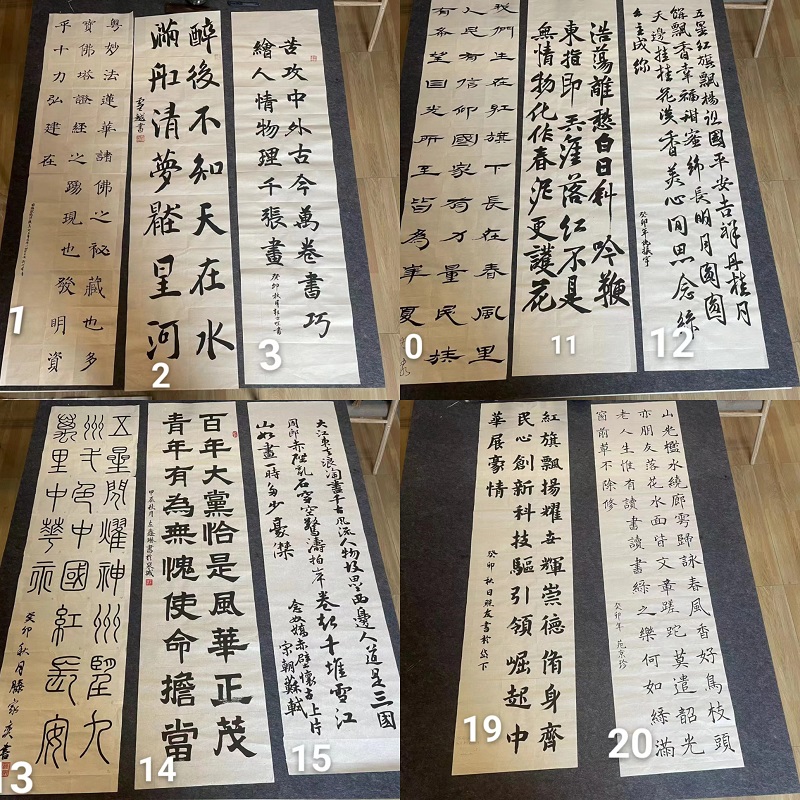 粤妙法蓮華諸佛之祕藏也多
寶佛塔證經之踴現也發明資
乎十力弘建在
1
醉後不知天在水
滿船清夢壓星河
李越書
2
苦攻中外古今萬卷書巧
繪人情物理千張畫
癸卯秋月書
3
我們生在紅旗下長在春風里
人民有信仰國家有力量民族
有希望目光所至皆為華夏
0
浩蕩離愁白日斜吟鞭
東指即天涯落紅不是
無情物化作春泥更護花
11
五星紅旗飄揚祖國平安吉祥丹桂月
餅飄香幸福甜蜜綿長明月圓圓
天邊挂桂花淡香美心间思念綠
主成你
癸卯年
12
五星閃耀神州望九
州千色中國紅長安
萬里中華
癸卯秋月滕家英書
13
百年大黨恰是風華正茂
青年有為無愧使命擔當
甲辰秋月左書於泉城
14
大江東去浪淘盡千古風流人物故壘西邊人道是三國
周郎赤壁亂石穿空驚濤拍岸卷起千堆雪江
山如畫一時多少豪傑
念奴嬌赤壁懷古上片
宋朝蘇軾
15
紅旗飄揚耀五輝崇德脩身齊
民心創新科技驅引領崛起中
華展豪情
癸卯秋日晓友書於岱下
19
山光檻水繞廊雩歸詠春風香好鳥枝頭
亦朋友落花水面皆文章蹉跎莫遣韶光
老人生惟有讀書讀書緑之樂何如綠滿
窗前草不除修
癸卯年范京珍
20